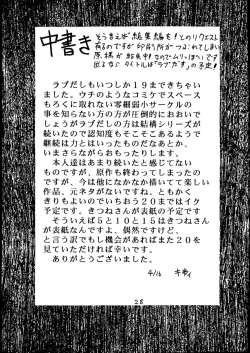 中書き
そういえば総集編を!とのリクエスト
有るのですが印刷所がつぶれてしまい
原稿が紛失中なのでムリっぽいです
出るならタイトルは「ラブガタ」の予定!
ラブだしもいつしか19まできちゃい
ました。ウチのようなコミケでスペース
もろくに取れない零細弱小サークルの
事を知らない方の方が圧倒的におおいで
しょうがラブだしの方は結構シリーズが
続いたので認知度もそこそこあるようで
継続は力とはいったものだなあとか、
いまさらながらおもったりします。
本人達はあまり続いたと感じてない
ものですが、原作も終わってだいぶたの
ですが、今は他になかなか描いてて楽しい
作品、元ネタがないですね。ともかく
きりもよいのでいちおう20まではイク
予定です。きつねさんが表紙の予定です
そういえば5と10と15はきつねさん
が表紙なんですよ、偶然ですけど、
と言う訳でもし機会があればまた20を
見ていただければ幸いです。
ありがとうございました。
4/16
28